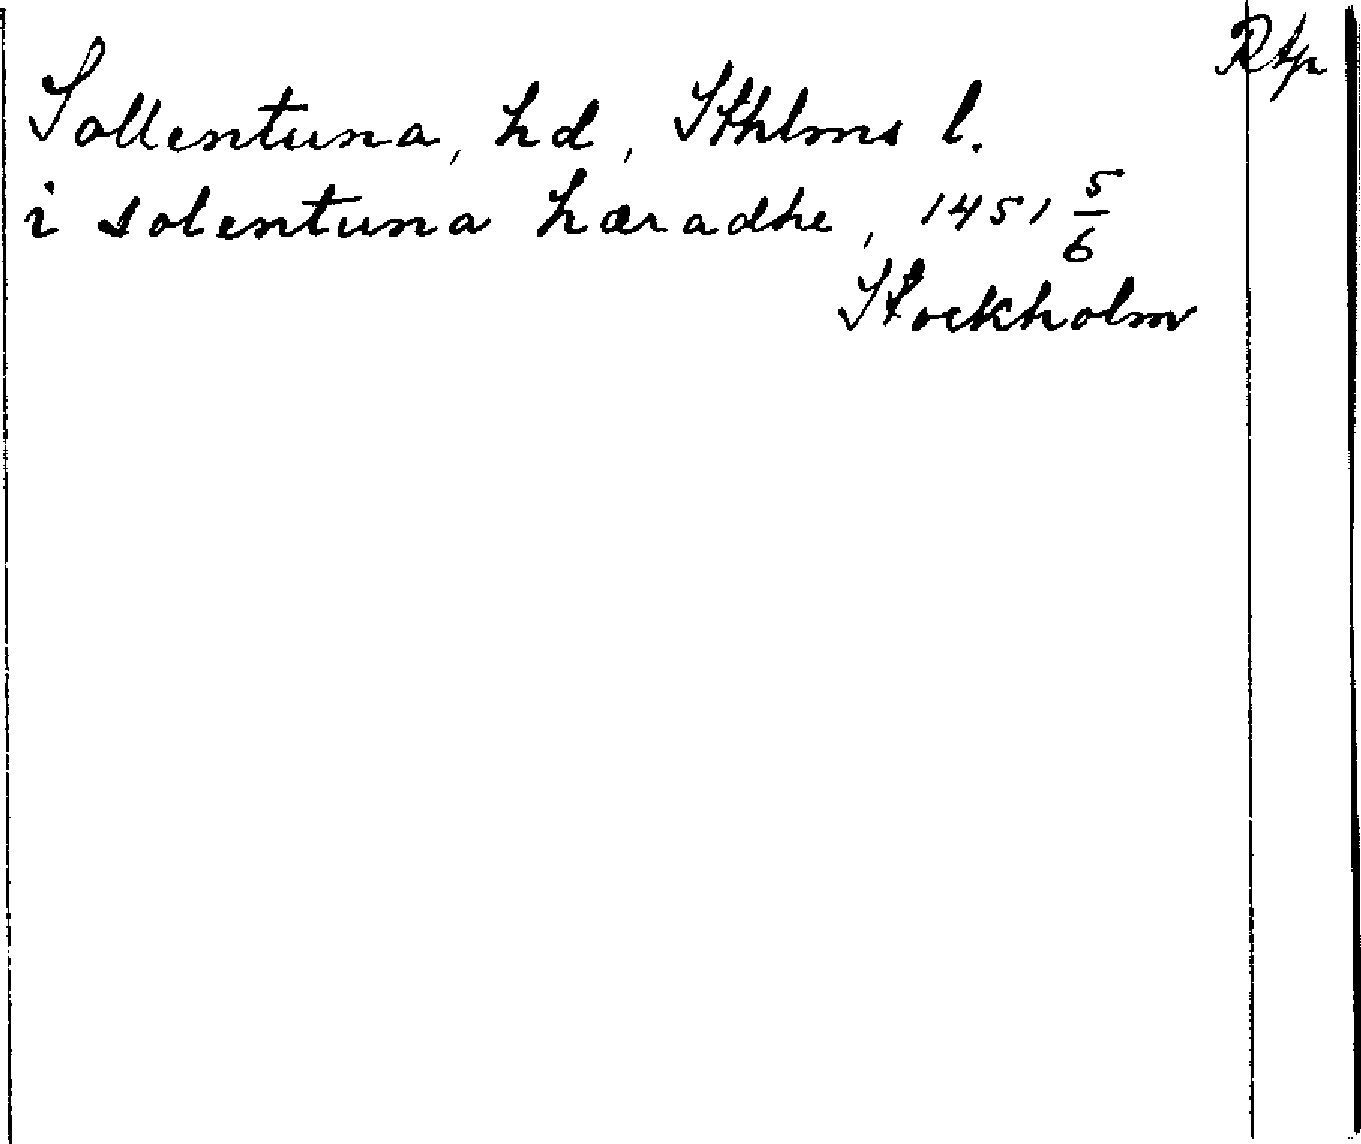 Rtp
Sollentuna, hd, Sthlms l.
i solentuna hæradhe, 1451 5/6
Stockholm